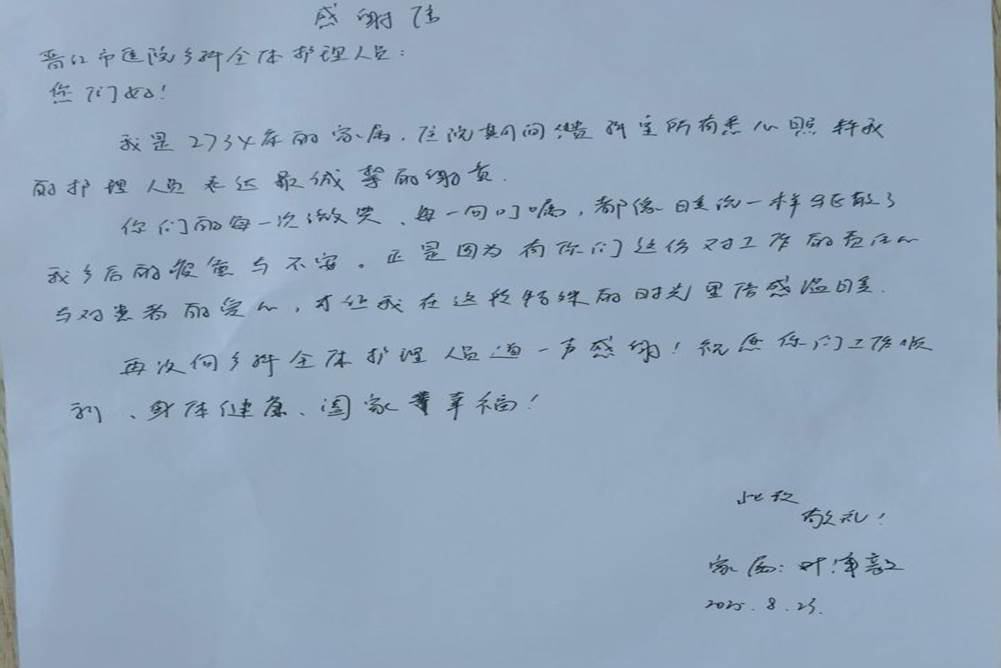 感谢信
晋江市医院乡科全体护理人员:
您们好!
我是2734床的家属,住院期间 科室所有悉心照料我
的护理人员表达最诚挚的谢意.
你们的每一次微笑、每一句叮嘱,都像暖流一样驱散了
我 后的疲惫与不安。正是因为有你们这份对工作的责任心
与对患者的爱心,才让我在这段特殊的时光里倍感温暖.
再次向 科全体护理人员道一声感谢!祝愿你们工作顺
利、身体健康、阖家幸福!
此致
敬礼!
家属:叶
2025.8.25.